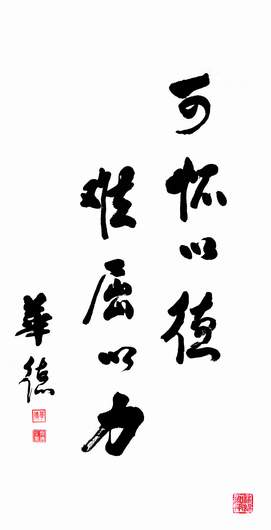 可怀以德
难屈以力
華德